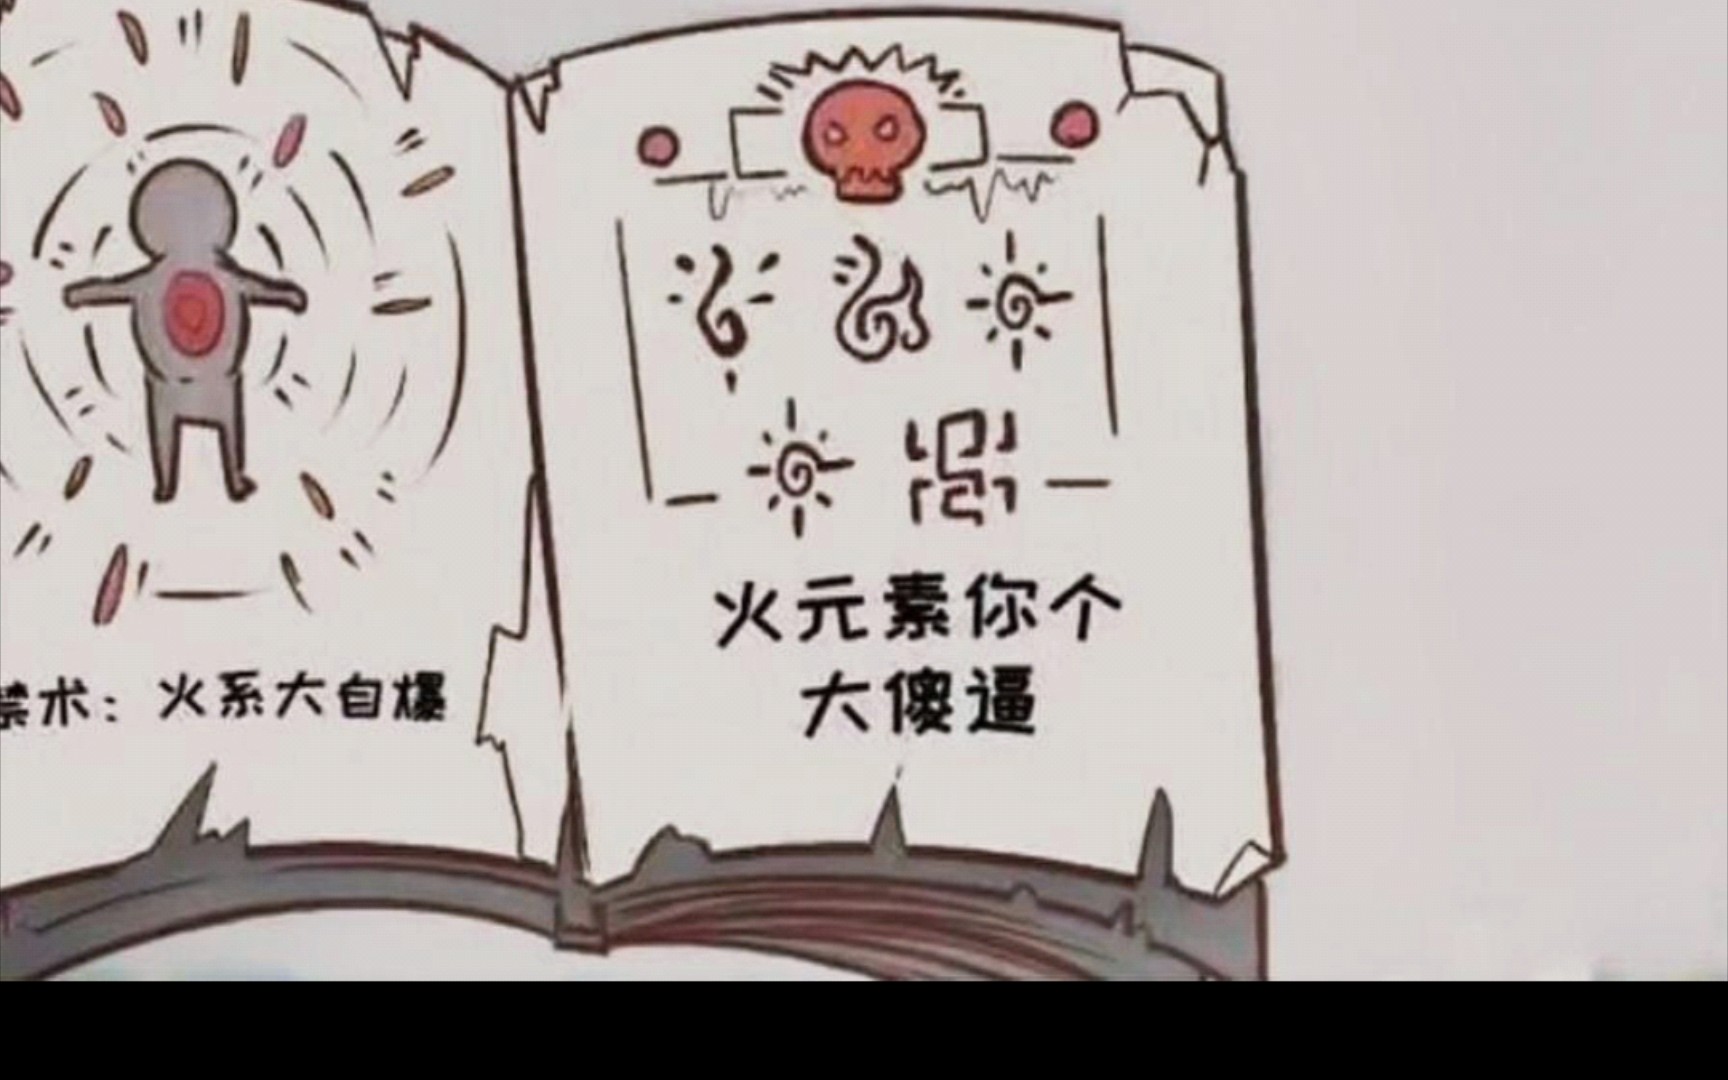 禁术：火系大自爆
火元素你个
大傻逼